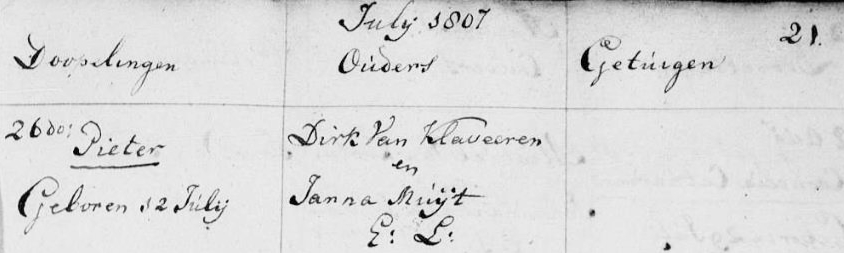 July 1807
21.
Doopelingen
Ouders
Getuigen
26 do:
Pieter
Geboren 12 Julij
Dirk Van Klaveeren
en
Janna Muijt
E: L: